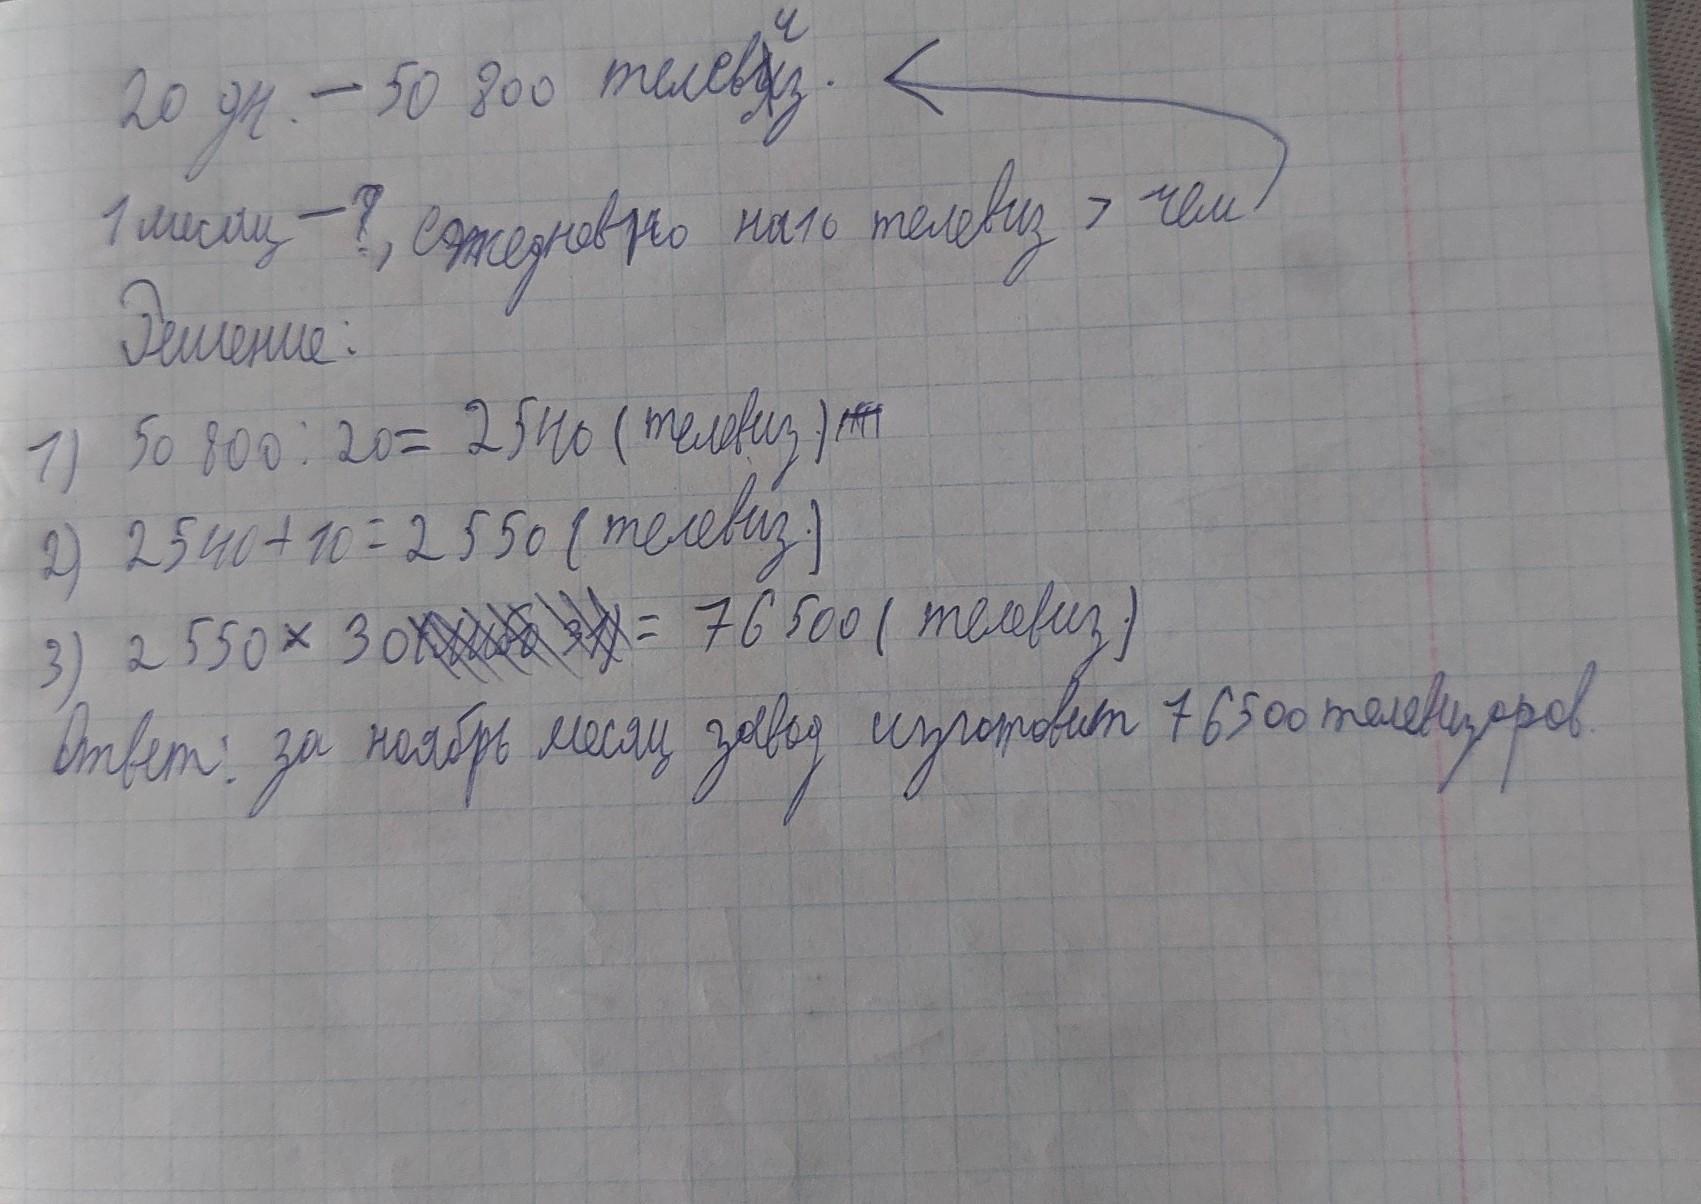 20 дн. – 50 800 телевиз.
1 месяц – ?, ежедневно на 10 телевиз > чем
Решение:
1) 50 800 : 20 = 2540 (телевиз.)
2) 2540 + 10 = 2550 (телевиз.)
3) 2550 × 30 = 76 500 (телевиз.)
Ответ: за ноябрь месяц завод изготовит 76500 телевизоров.